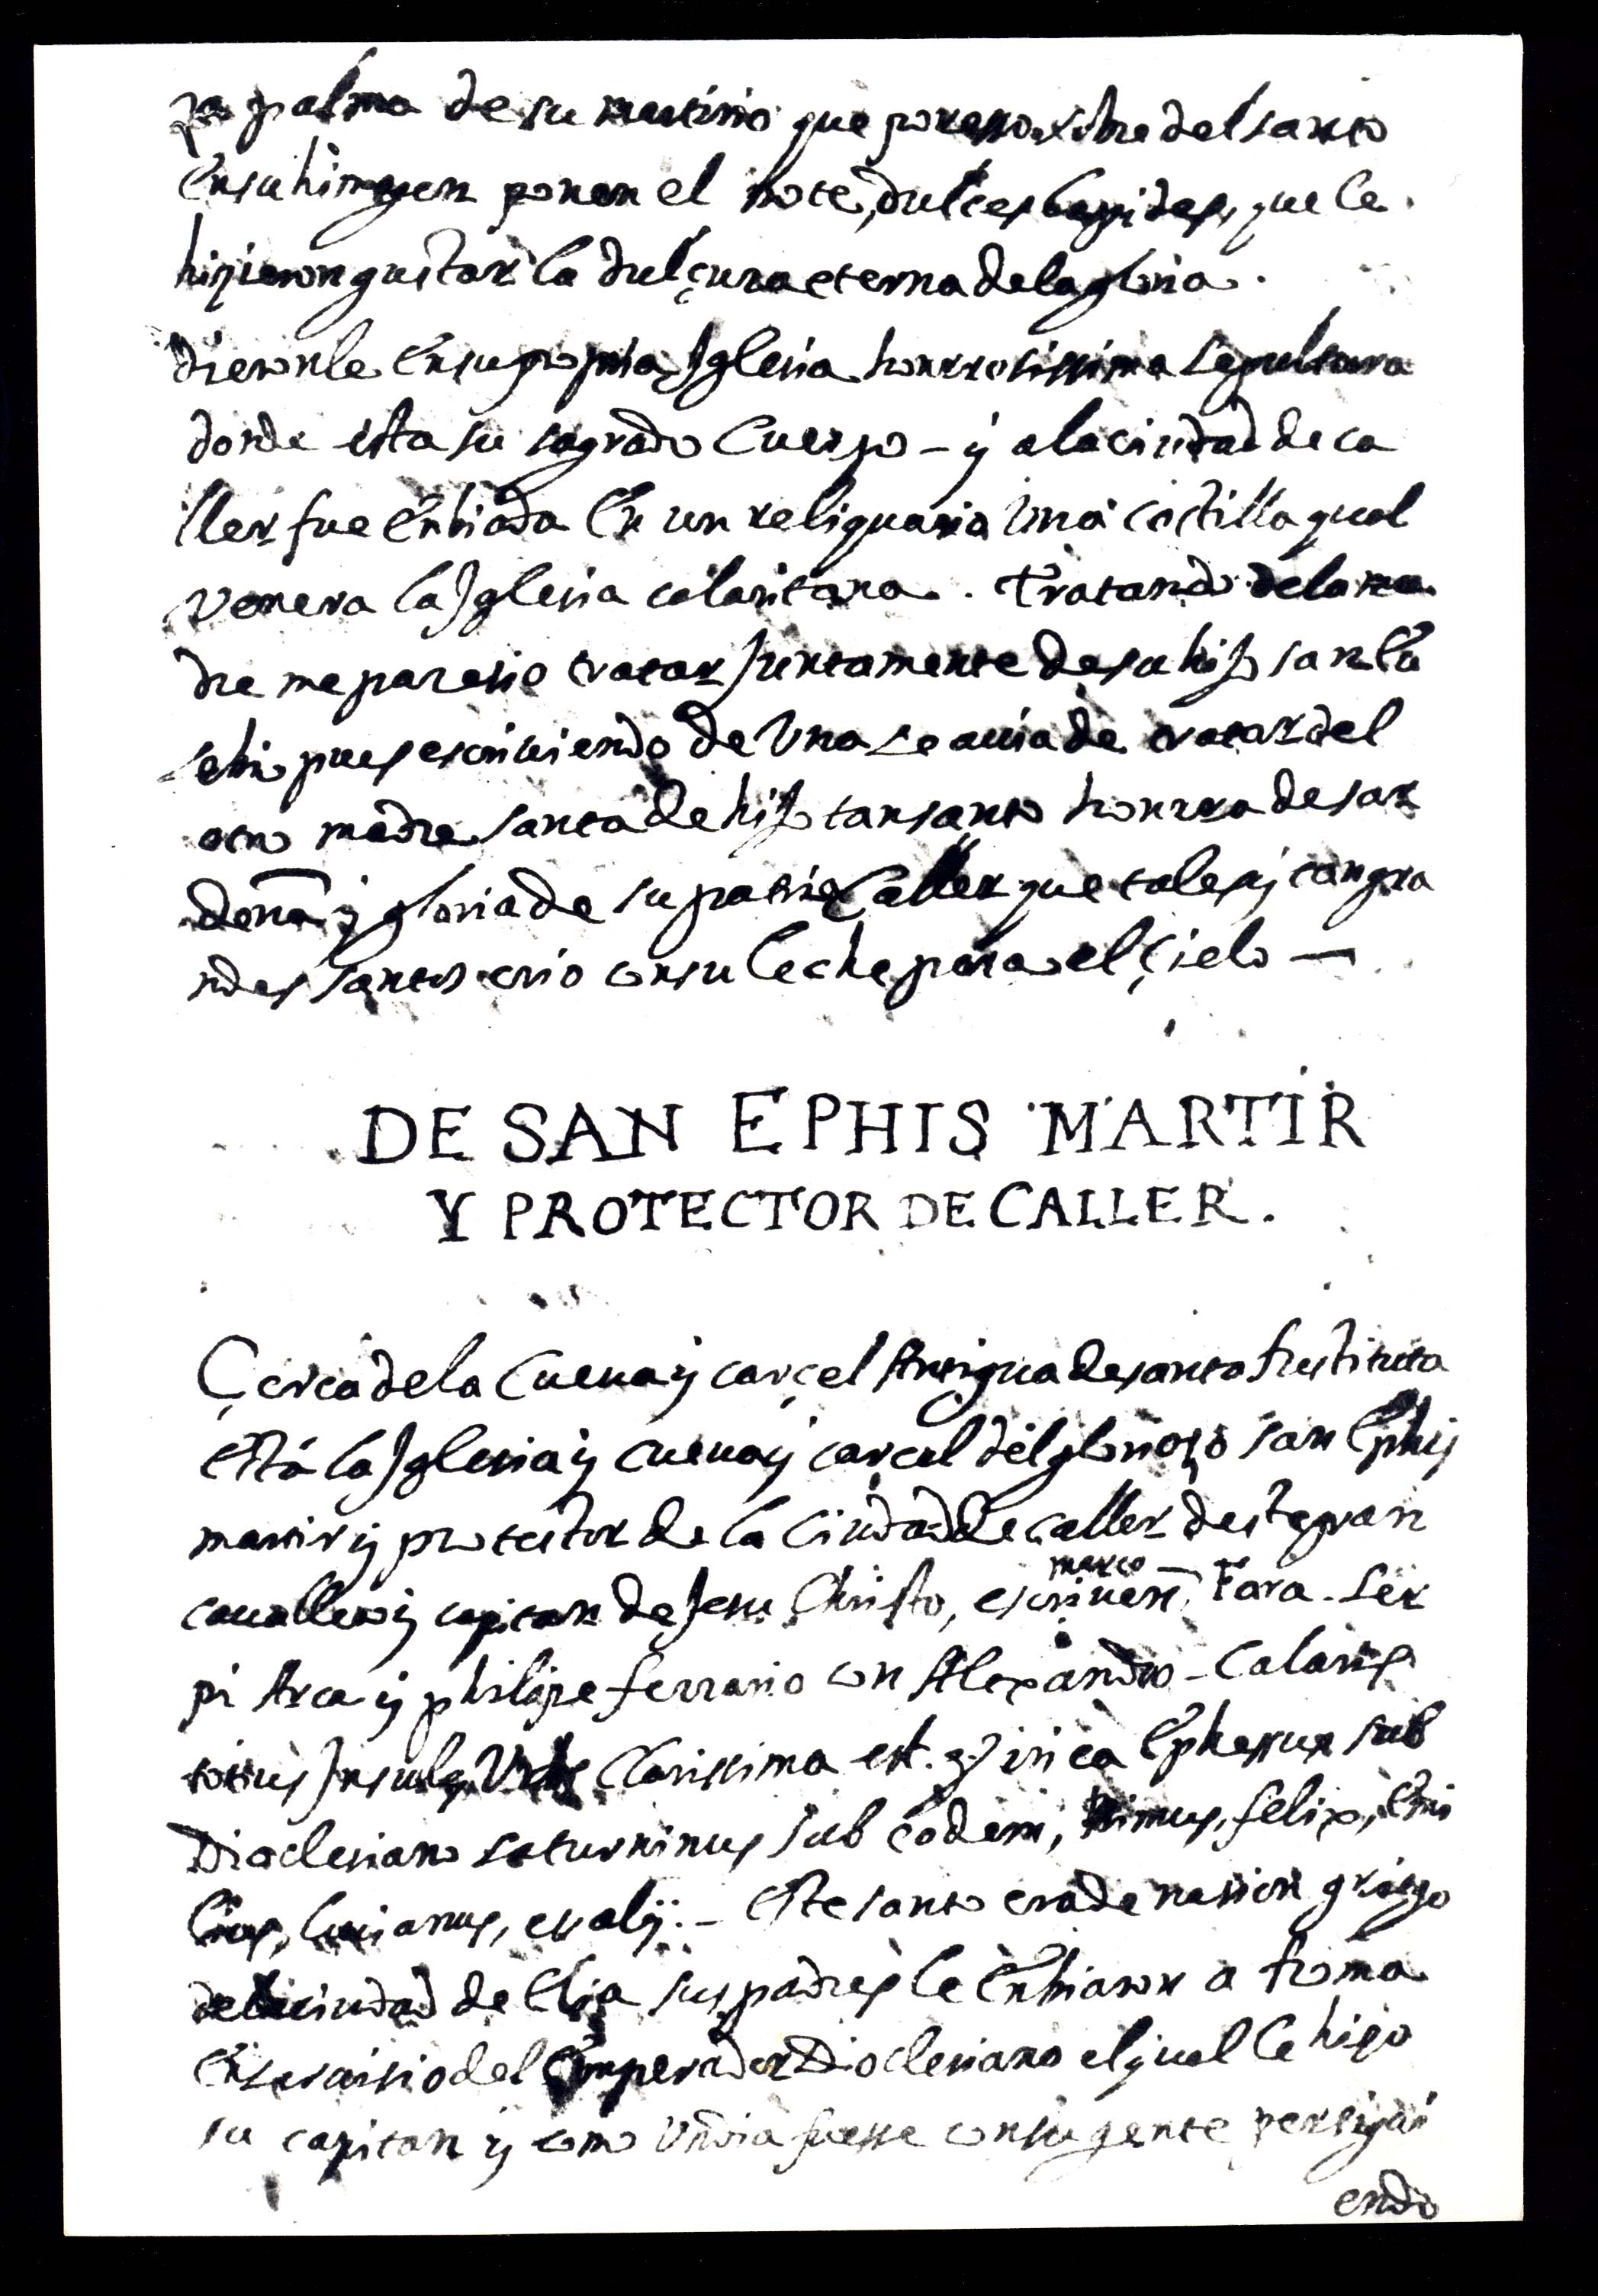 palma de su martirio que por esso ensima del santo
En su himagen ponen el mote, dulces lapides, que le
hizieron gustar la dulçura eterna de la gloria.
dieronle En su propria Iglesia honrrosissima sepultura
donde esta su sagrado Cuerpo – y a la ciudad de ca
ller fue Enbiada En un reliquario Una costilla qual
venera la Iglesia calaritana. Tratando de la ma
dre me paresio tratar Juntamente de su hijo san Eu
sebio pues escriuiendo de Uno se auia de tratar del
otro madre santa de hijo tan santo honrra de sar
deña y gloria de su patria Caller que tales y tan gra
ndes santos crio con su leche para el Çielo —
DE SAN EPHIS MARTIR
Y PROTECTOR DE CALLER.
Çerca de la Cueua y carçel Antigua de santa Restituta
está la Iglesia y cueua y carçel del glorioso san Ephis
martir y protector de la Ciudad de Caller deste gran
cauallero y capitan de Jesu Christo, escriuen, marco Fara. Ser
pi Arca y philipe ferrario con Alexandro – Calaris
totius Insulę Urbs Clarissima est. & in ea Ephesus sub
Diocleciano saturninus sub eodem, Nimus, felix, Emi
lius, Lucianus, et alij. – Este santo era de nassion griego
de la ciudad de Elia sus padres le Enbiaron a Roma
En seruisio del Emperador Diocleciano el qual le hizo
su capitan y como Undia fuesse con su gente persigui
endo